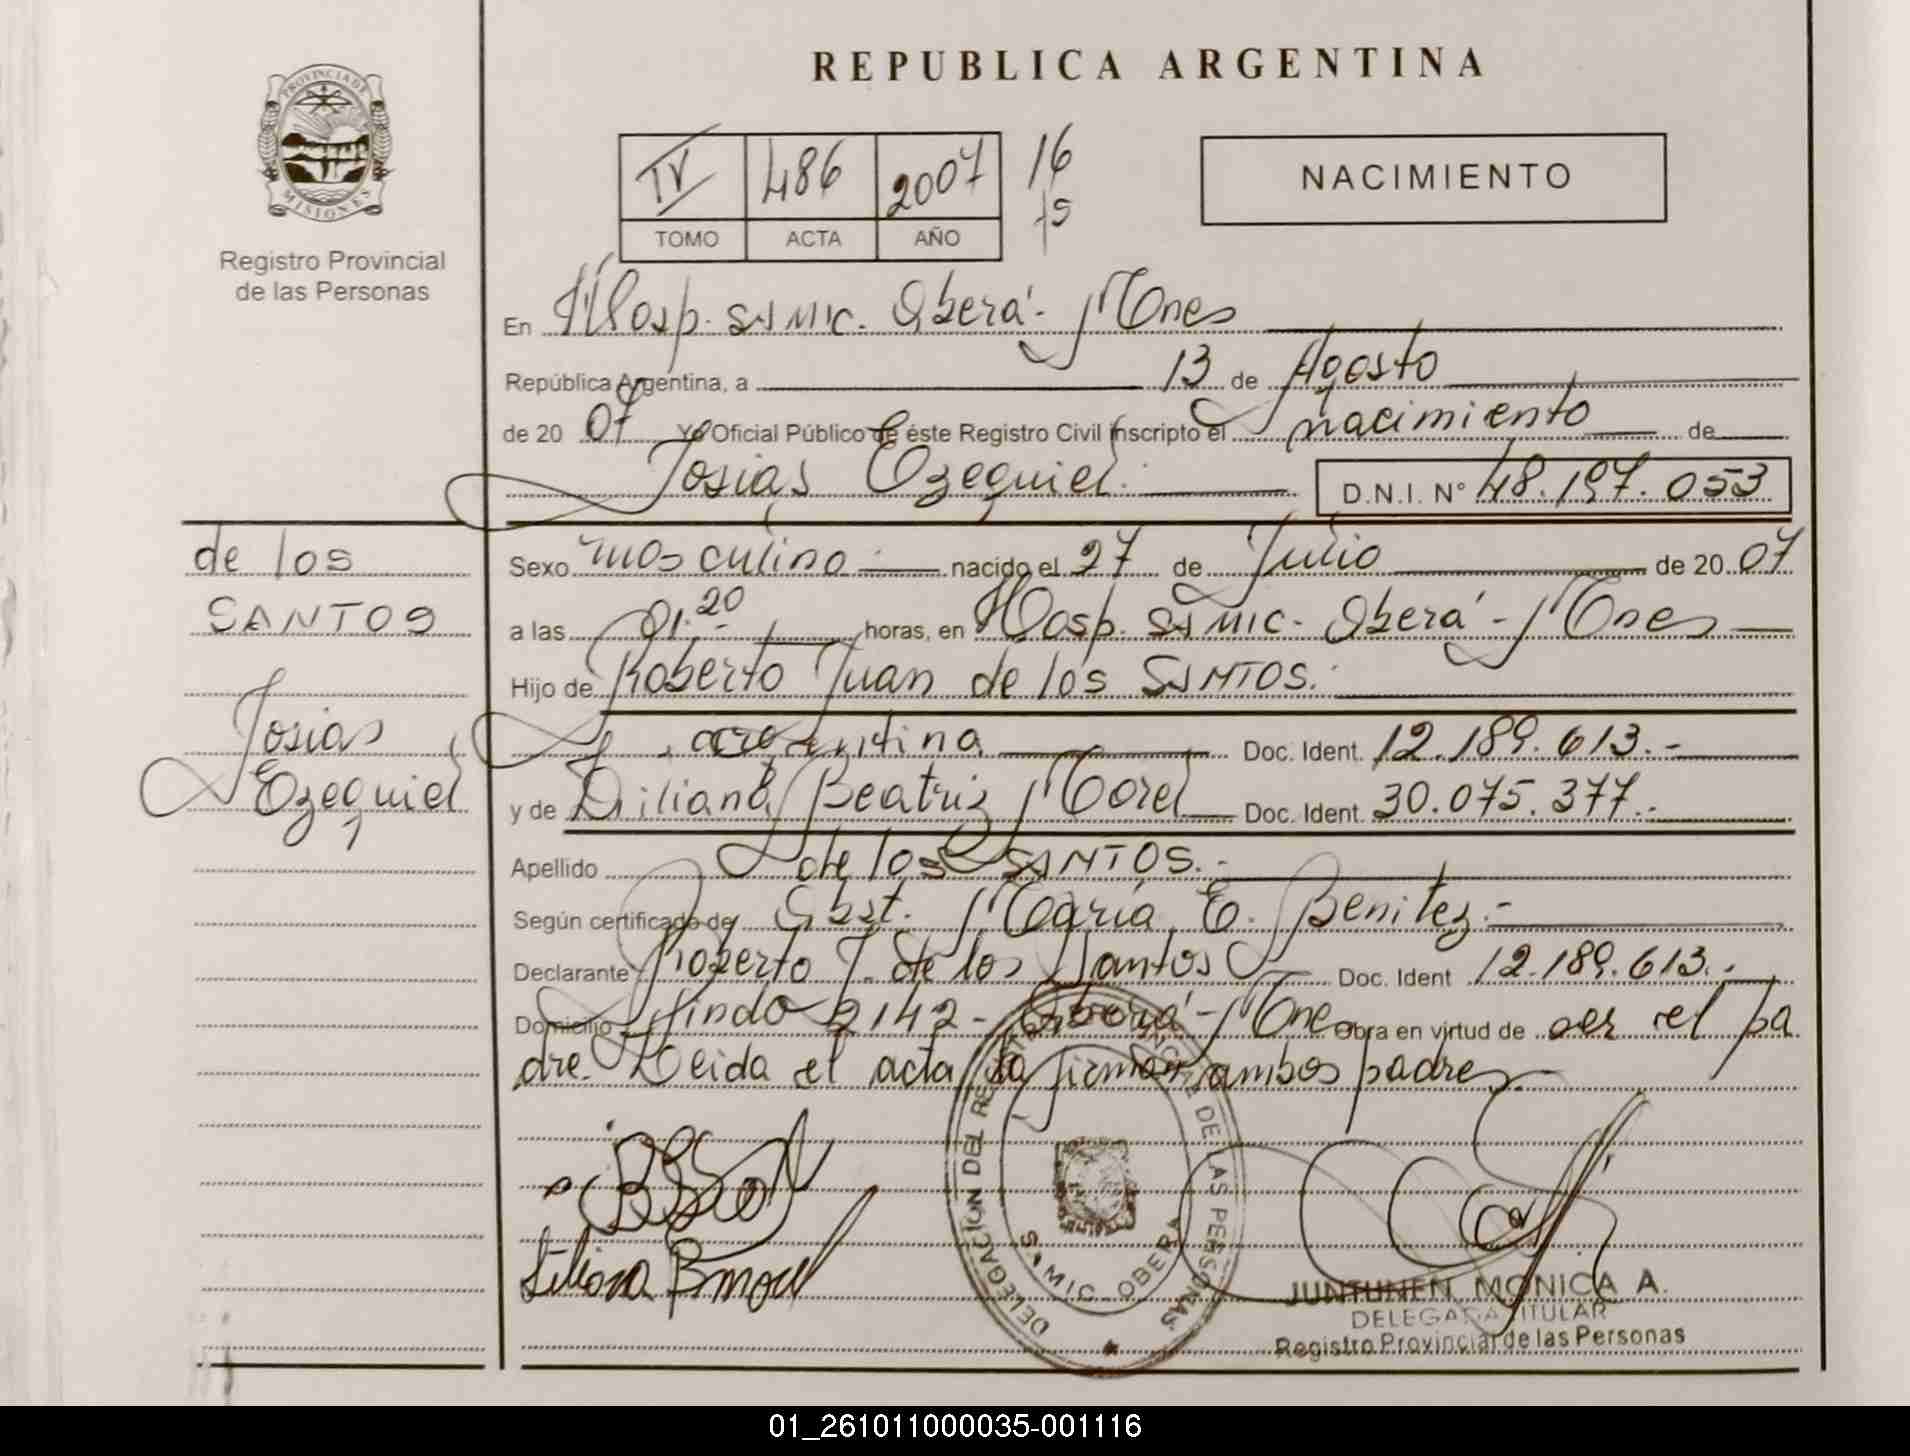 REPUBLICA ARGENTINA
PROVINCIA DE MISIONES
Registro Provincial
de las Personas
IV 486 2007 16
TOMO ACTA AÑO
NACIMIENTO
En Hosp. SAMIC. Oberá - Mnes
República Argentina, a 13 de Agosto
de 20 07 Yo Oficial Público de éste Registro Civil inscripto el nacimiento de
Josias Ezequiel. D.N.I. N° 48.197.053
de los
SANTOS
Josias
Ezequiel
Sexo masculino nacido el 27 de Julio de 20 07
a las 01.20 horas, en Hosp. SAMIC - Oberá - Mnes
Hijo de Roberto Juan de los SANTOS.
argentina Doc. Ident. 12.189.613.-
y de Liliana Beatriz Morel Doc. Ident. 30.075.377.-
Apellido de los SANTOS.-
Según certificado de Obst. María E. Benitez.-
Declarante Roberto J. de los Santos Doc. Ident 12.189.613.-
Domicilio 2142 - Oberá - Mnes Obra en virtud de ser el pa
dre. Leida el acta la firman ambos padres
Liliana B Morel
DELEGACION DEL REGISTRO PROVINCIAL DE LAS PERSONAS
SAMIC OBERA
JUNTUNEN MONICA A.
DELEGADA TITULAR
Registro Provincial de las Personas
01_261011000035-001116